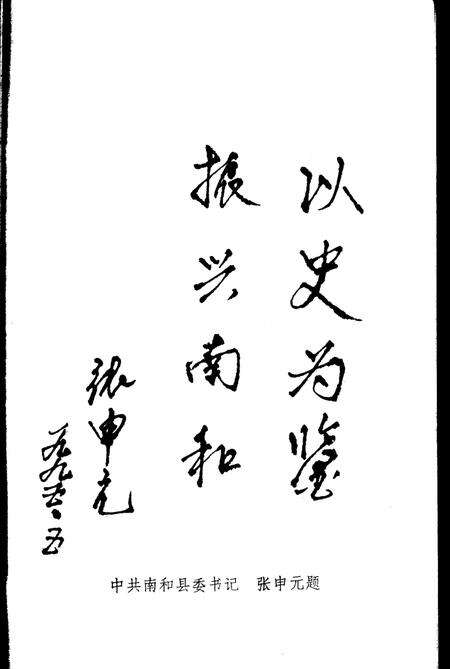 以史为鉴
振兴南和
张申元
一九九五、五
中共南和县委书记　张申元题